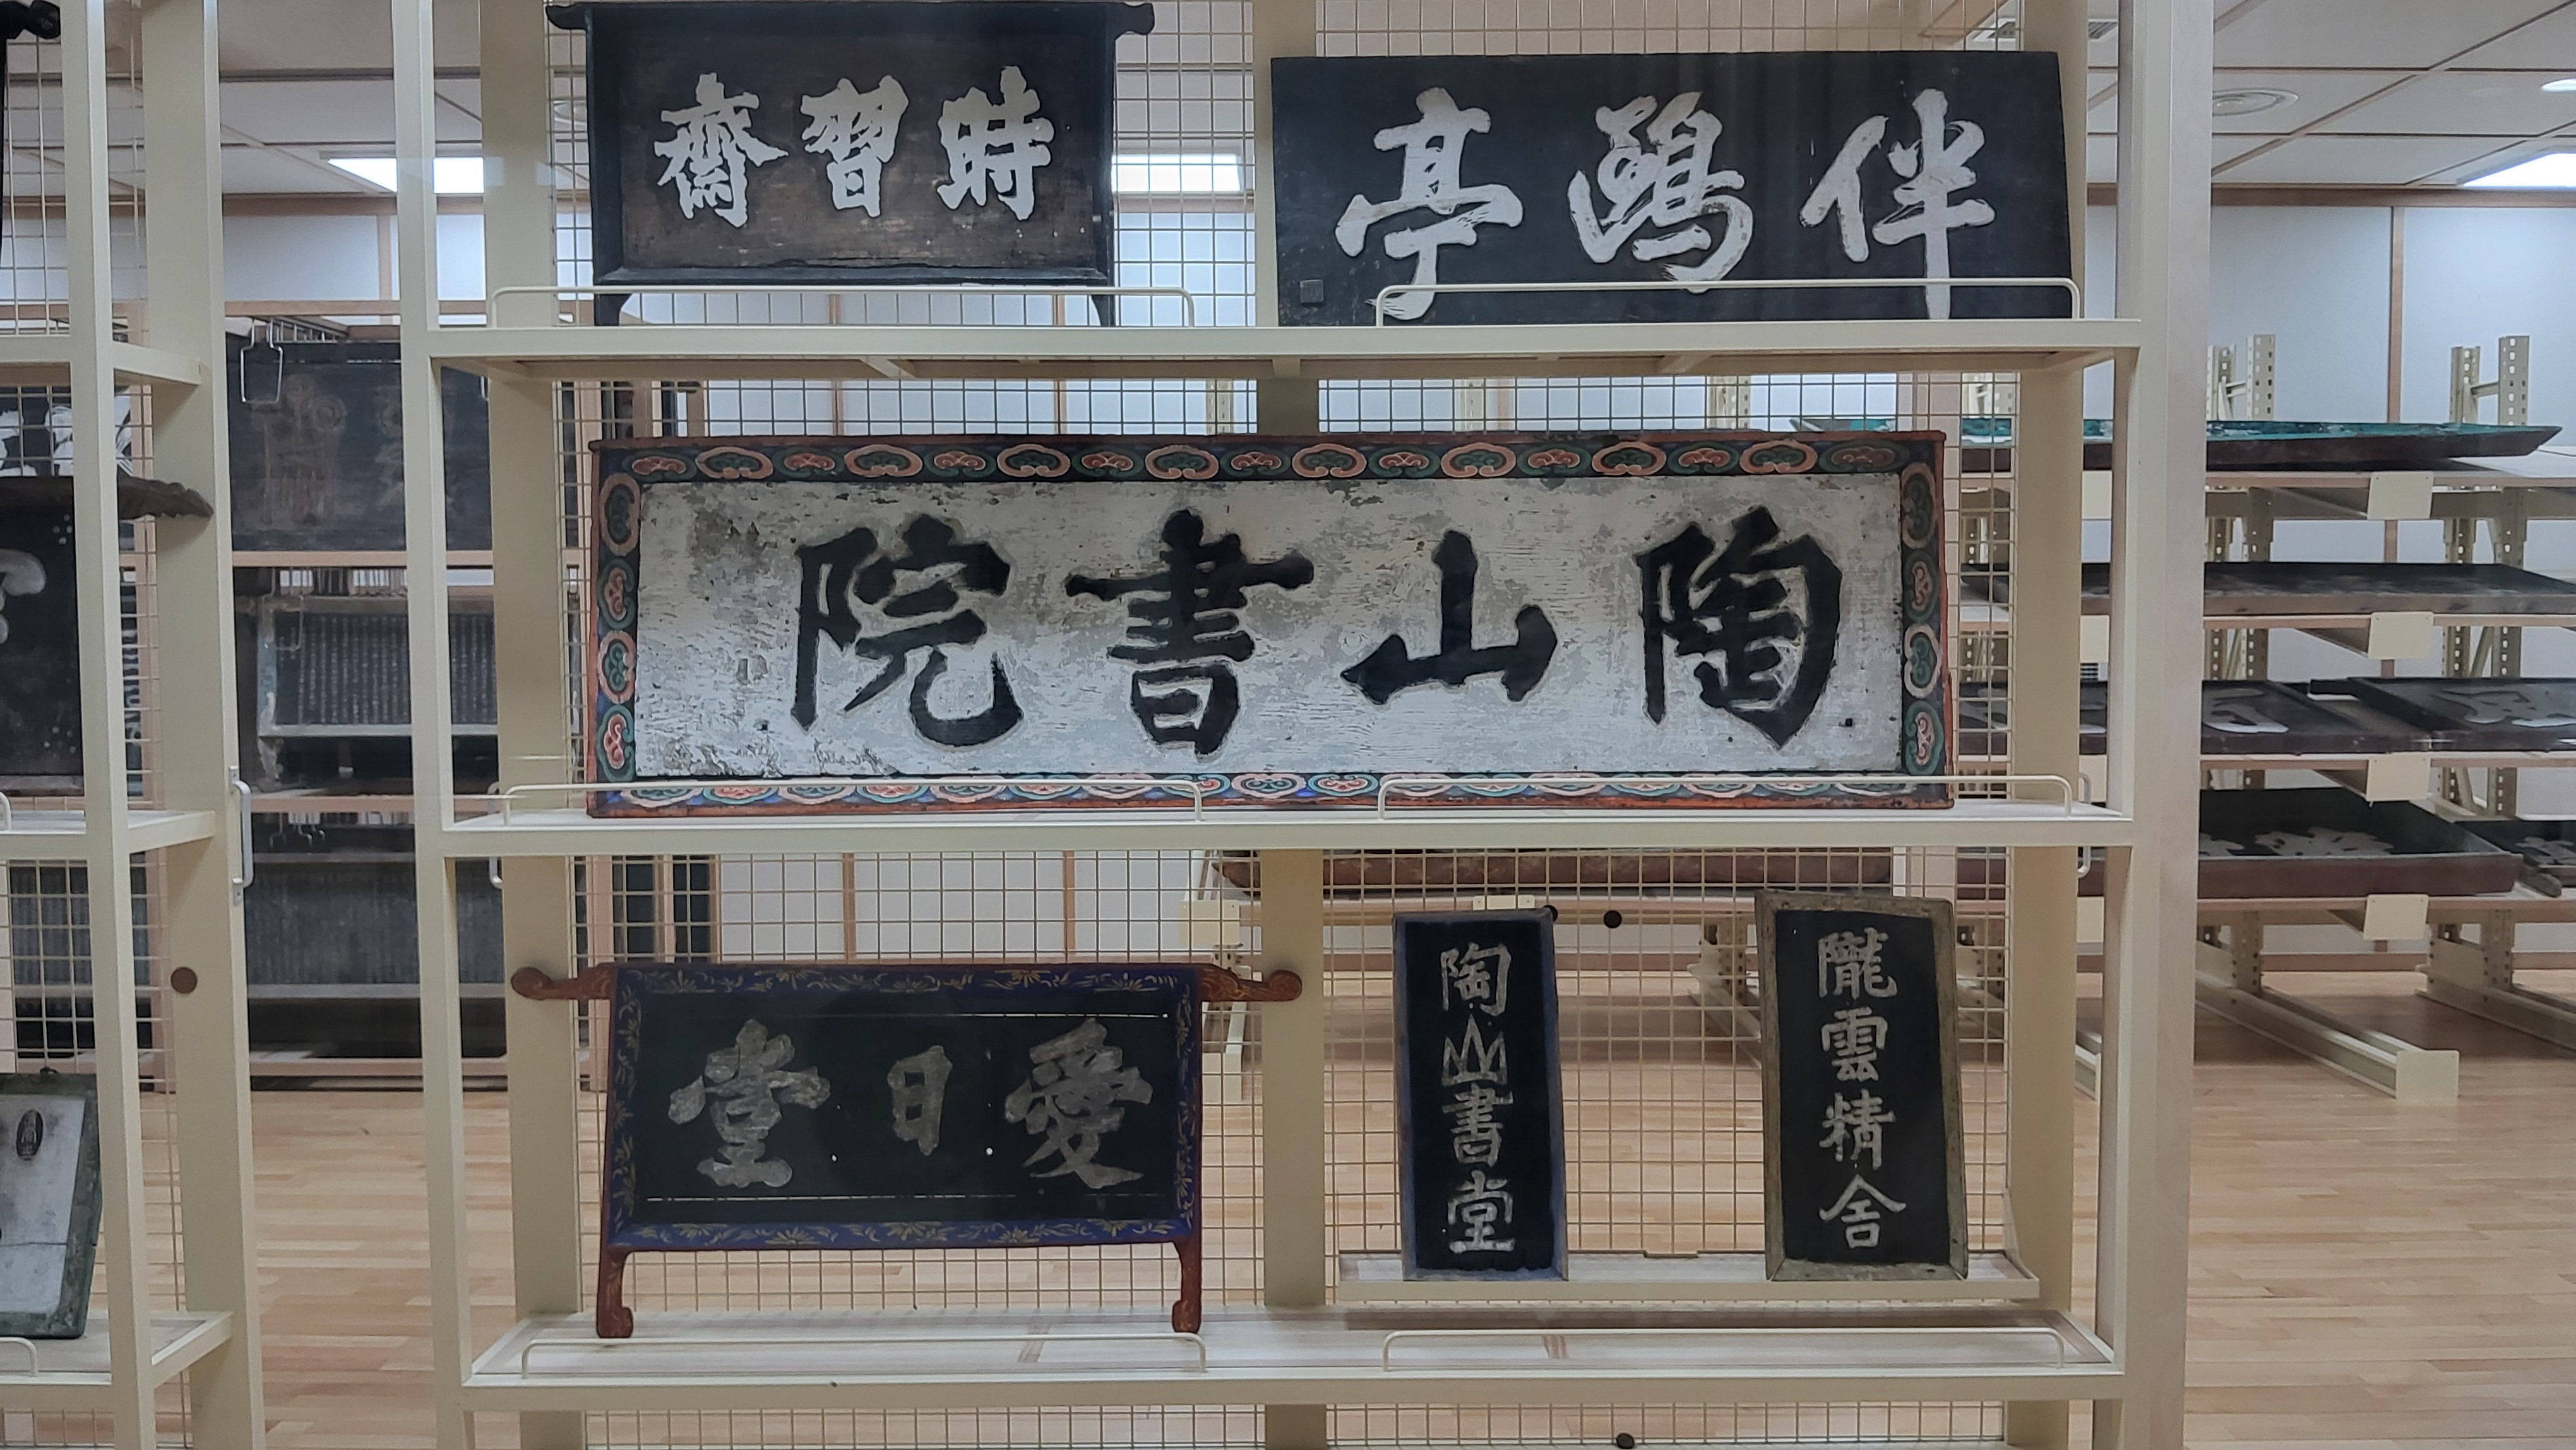 時習齋
伴鷗亭
陶山書院
愛日堂
陶山書堂
隴雲精舍